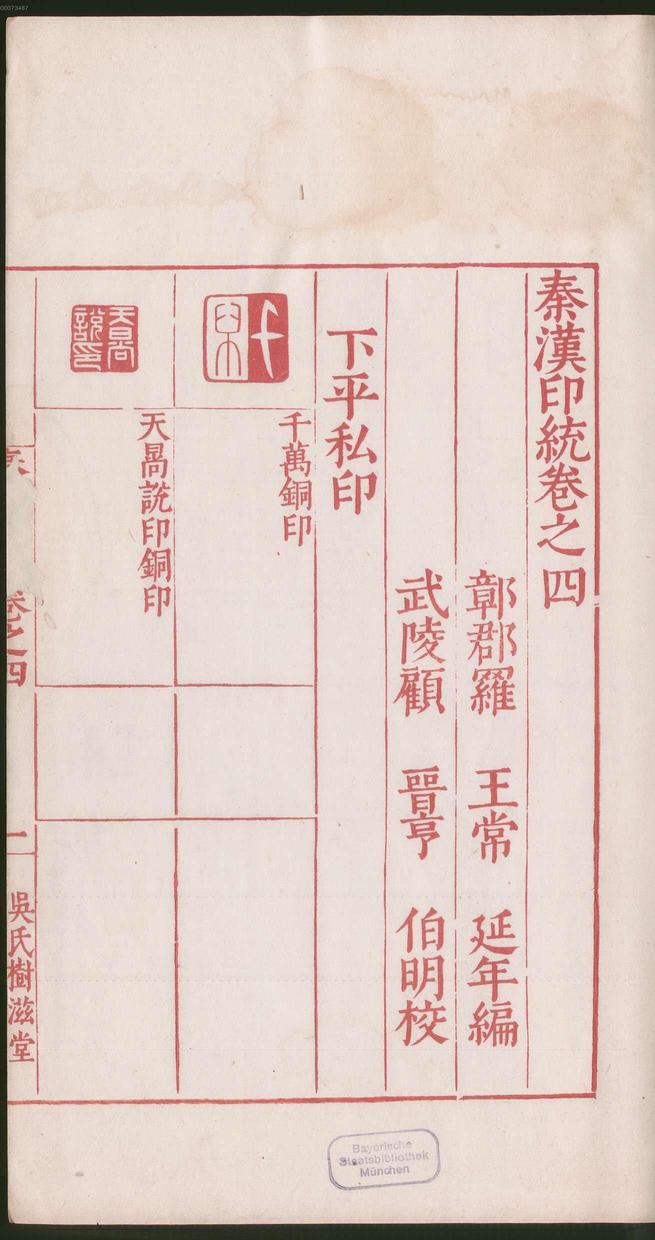 秦漢印統卷之四
鄣郡羅 王常 延年編
武陵顧 晉亨 伯明校
下平私印
千萬銅印
天暠說印銅印
卷之四
一
吳氏樹滋堂
Bayerische
Staatsbibliothek
München
00073467